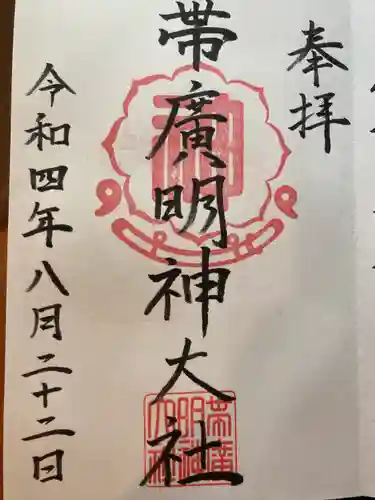 奉拝
帯廣明神大社
令和四年八月二十二日
帯廣
明神
大社